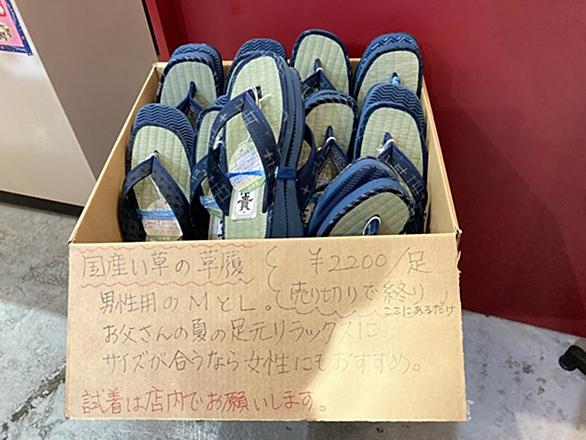 国産い草の草履
¥2200/足
売り切りで終り
ここにあるだけ
男性用のMとL。
お父さんの夏の足元リラックスに
サイズが合うなら女性にもおすすめ。
試着は店内でお願いします。